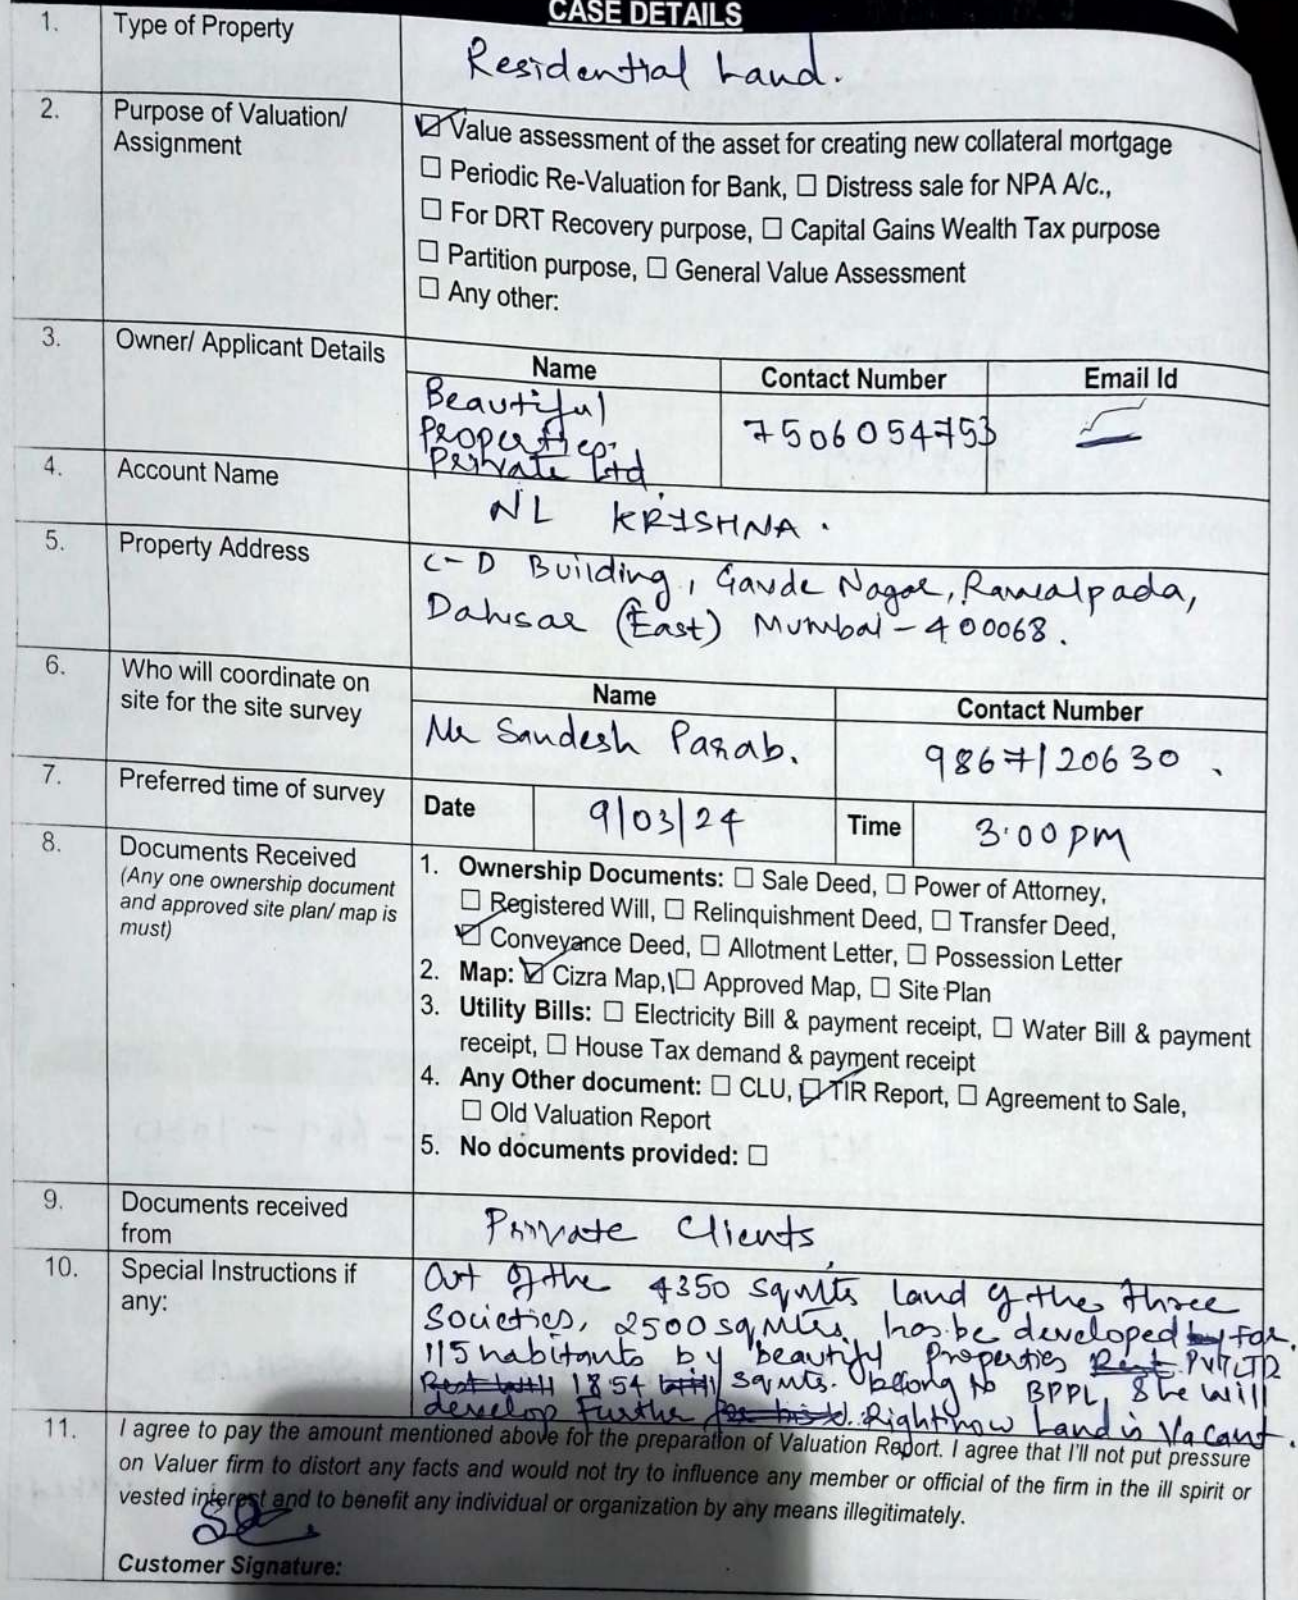 CASE DETAILS
1. Type of Property Residential Land.
2. Purpose of Valuation/ Assignment
☑ Value assessment of the asset for creating new collateral mortgage
☐ Periodic Re-Valuation for Bank, ☐ Distress sale for NPA A/c.,
☐ For DRT Recovery purpose, ☐ Capital Gains Wealth Tax purpose
☐ Partition purpose, ☐ General Value Assessment
☐ Any other:
3. Owner/ Applicant Details
Name Contact Number Email Id
Beautiful
Properties
Private Ltd
7506054753
4. Account Name NL KRISHNA.
5. Property Address
C-D Building, Gavde Nagar, Rawalpada,
Dahisar (East) Mumbai - 400068.
6. Who will coordinate on
site for the site survey
Name Contact Number
Mr Sandesh Parab. 9867120630
7. Preferred time of survey Date 9/03/24 Time 3:00 PM
8. Documents Received
(Any one ownership document
and approved site plan/ map is
must)
1. Ownership Documents: ☐ Sale Deed, ☐ Power of Attorney,
☐ Registered Will, ☐ Relinquishment Deed, ☐ Transfer Deed,
☑ Conveyance Deed, ☐ Allotment Letter, ☐ Possession Letter
2. Map: ☑ Cizra Map, ☐ Approved Map, ☐ Site Plan
3. Utility Bills: ☐ Electricity Bill & payment receipt, ☐ Water Bill & payment
receipt, ☐ House Tax demand & payment receipt
4. Any Other document: ☐ CLU, ☑ TIR Report, ☐ Agreement to Sale,
☐ Old Valuation Report
5. No documents provided: ☐
9. Documents received
from
Private Clients
10. Special Instructions if
any:
Out of the 4350 sqmts land of the three
Societies, 2500 sq Mtrs. has be developed for
115 habitants by beautiful Properties PVT LTD
1854 sqmts. belong to BPPL, & he will
develop further. Right now Land is Vacant.
11. I agree to pay the amount mentioned above for the preparation of Valuation Report. I agree that I'll not put pressure
on Valuer firm to distort any facts and would not try to influence any member or official of the firm in the ill spirit or
vested interest and to benefit any individual or organization by any means illegitimately.
Customer Signature: